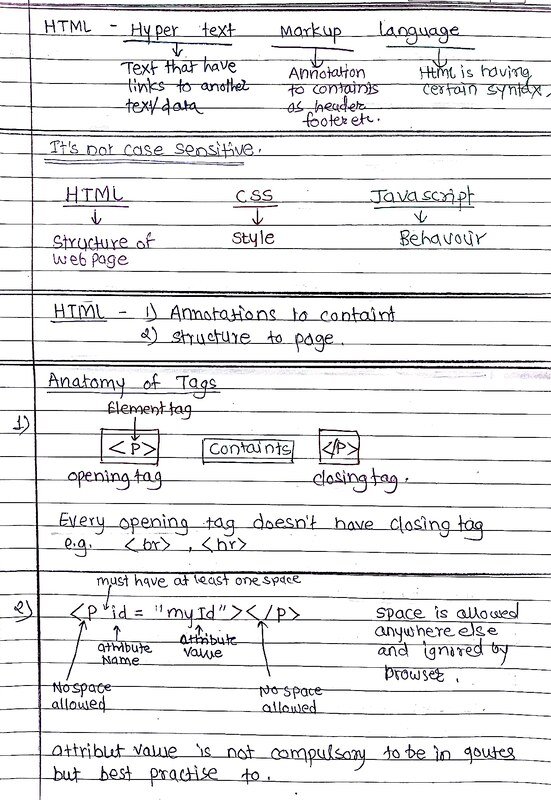 HTML - Hyper text markup language
Text that have links to another text/data
Annotation to containts as header footer etc.
Html is having certain syntax.
It's not case sensitive.
HTML CSS Javascript
Structure of webpage
Style
Behavour
HTML - 1) Annotations to containt
2) structure to page.
Anatomy of Tags
Element tag
1) <P> Containts </P>
opening tag closing tag.
Every opening tag doesn't have closing tag
e.g. <br> , <hr>
must have at least one space
2) <P id = "myId"></P>
attribute Name
attribute value
No space allowed
No space allowed
space is allowed
anywhere else
and ignored by
browser.
attribut value is not compulsory to be in qoutes
but best practise to.